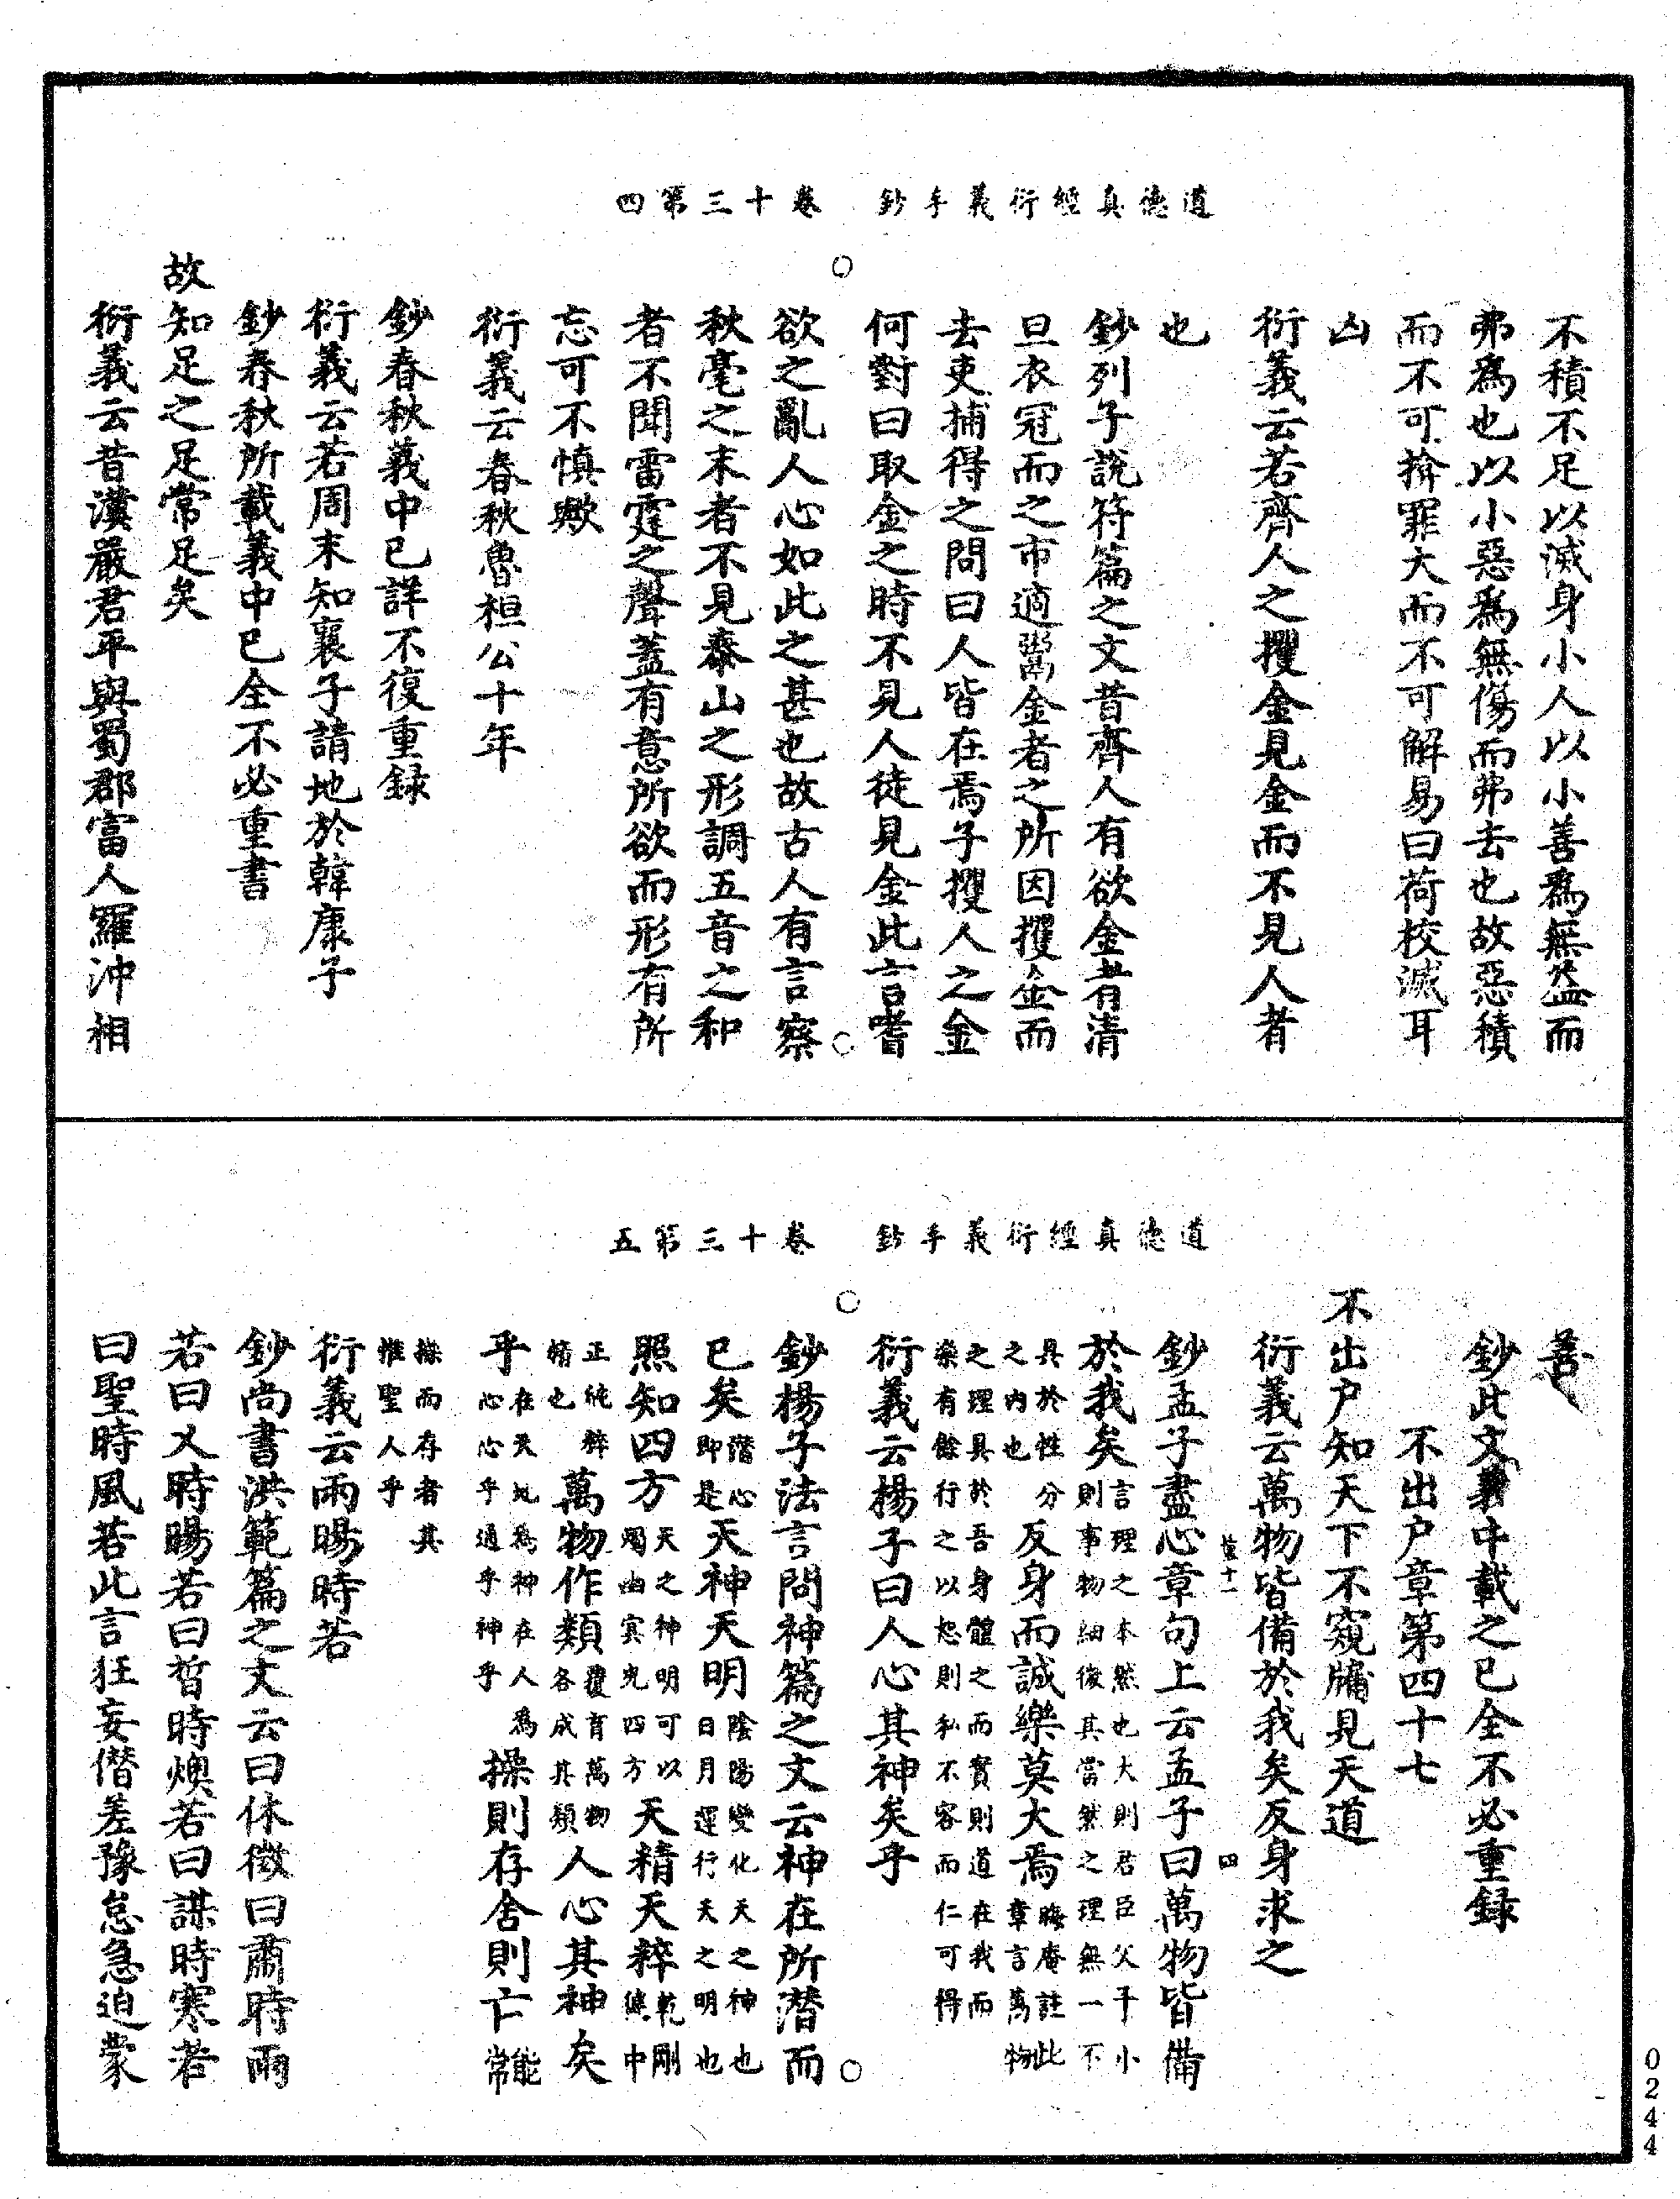 道德真經衍義手鈔 卷十三第四
不積不足以滅身小人以小善爲無益而
弗爲也以小惡爲無傷而弗去也故惡積
而不可揜罪大而不可解易曰荷校滅耳
凶
衍義云若齊人之攫金見金而不見人者
也
鈔列子說符篇之文昔齊人有欲金者清
旦衣冠而之市適鬻金者之所因攫金而
去吏捕得之問曰人皆在焉子攫人之金
何對曰取金之時不見人徒見金此言嗜
欲之亂人心如此之甚也故古人有言察
秋毫之末者不見泰山之形調五音之和
者不聞雷霆之聲蓋有意所欲而形有所
忘可不慎歟
衍義云春秋魯桓公十年
鈔春秋義中已詳不復重録
衍義云若周末知襄子請地於韓康子
鈔春秋所載義中已全不必重書
故知足之足常足矣
衍義云昔漢嚴君平與蜀郡富人羅沖相
道德真經衍義手鈔 卷十三第五
善
鈔此文義中載之已全不必重録
不出户章第四十七
不出户知天下不窺牖見天道
衍義云萬物皆備於我矣反身求之
鈔孟子盡心章句上云孟子曰萬物皆備
於我矣言理之本然也大則君臣父子小則事物細微其當然之理無一不
具於性分之内也反身而誠樂莫大焉晦庵註此章言萬物
之理具於吾身體之而實則道在我而樂有餘行之以恕則私不容而仁可得
衍義云揚子曰人心其神矣乎
鈔楊子法言問神篇之文云神在所潛而
已矣潛心即是天神天明陰陽變化天之神也日月運行天之明也
照知四方天之神明可以燭幽冥究四方天精天粹乾剛健中
正純粹精也萬物作類覆育萬物各成其類人心其神矣
乎在天地爲神在人爲心心乎通乎神乎操則存舍則亡能常
操而存者其惟聖人乎
衍義云雨暘時若
鈔尚書洪範篇之文云曰休徵曰肅時雨
若曰乂時暘若曰晢時燠若曰謀時寒若
曰聖時風若此言狂妄僭差豫怠急迫蒙
四
0244